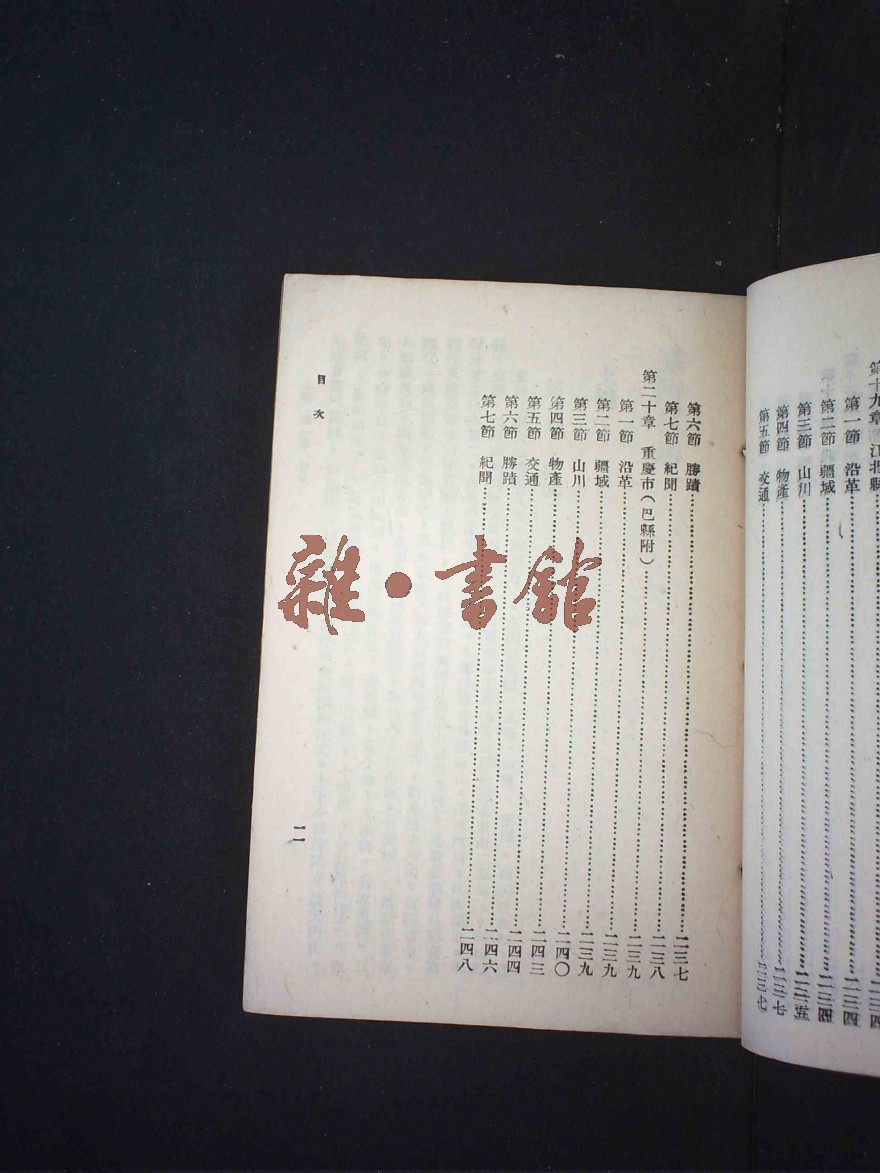 第十九章 江北縣……二三四
第一節 沿革……二三四
第二節 疆域……二三四
第三節 山川……二三五
第四節 物產……二三七
第五節 交通……二三七
第六節 勝蹟……二三七
第七節 紀聞……二三八
第二十章 重慶市（巴縣附）……二三九
第一節 沿革……二三九
第二節 疆域……二三九
第三節 山川……二四〇
第四節 物產……二四三
第五節 交通……二四四
第六節 勝蹟……二四六
第七節 紀聞……二四八
目次
一一
雜·書館